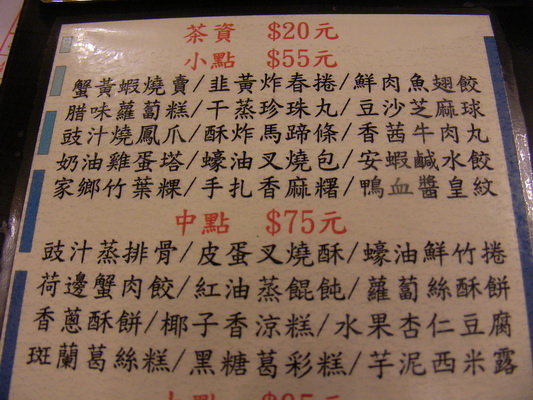 茶資 $20元
小點 $55元
蟹黃蝦燒賣/韭黃炸春捲/鮮肉魚翅餃
腊味蘿蔔糕/干蒸珍珠丸/豆沙芝麻球
豉汁燒鳳爪/酥炸馬蹄條/香茜牛肉丸
奶油雞蛋塔/蠔油叉燒包/安蝦鹹水餃
家鄉竹葉粿/手扎香麻糬/鴨血醬皇紋
中點 $75元
豉汁蒸排骨/皮蛋叉燒酥/蠔油鮮竹捲
荷邊蟹肉餃/紅油蒸餛飩/蘿蔔絲酥餅
香蔥酥餅/椰子香涼糕/水果杏仁豆腐
斑蘭葛絲糕/黑糖葛彩糕/芋泥西米露